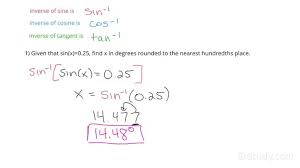 inverse of sine is sin⁻¹
inverse of cosine is cos⁻¹
inverse of tangent is tan⁻¹
1) Given that sin(x)=0.25, find x in degrees rounded to the nearest hundredths place.
sin⁻¹[sin(x) = 0.25]
x = sin⁻¹(0.25)
14.477
14.48°
Study.com